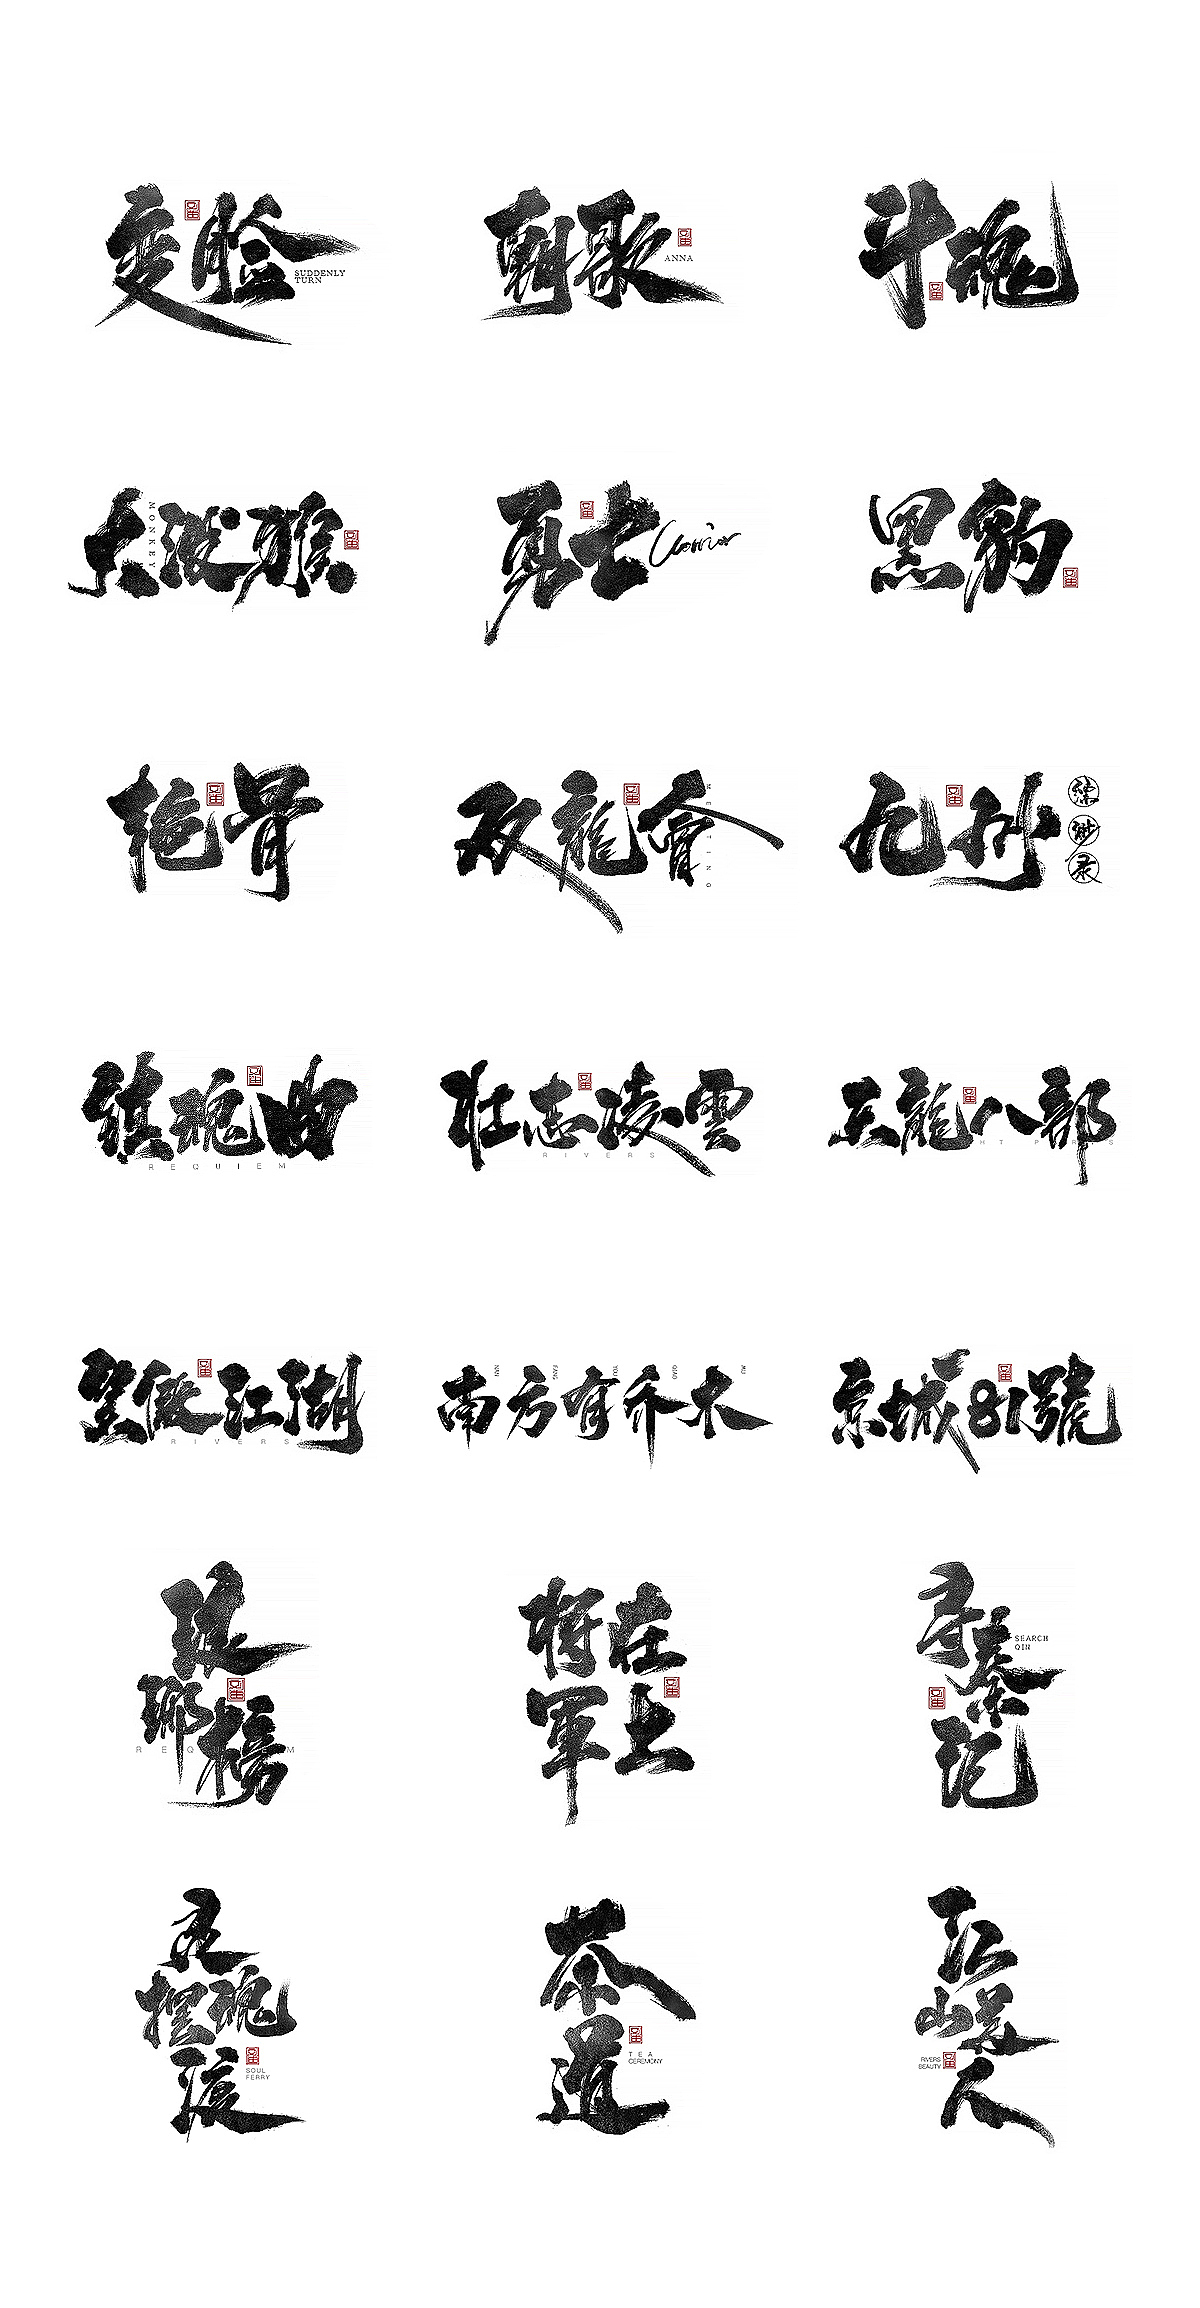 变脸
SUDDENLY
TURN
朝歌
ANNA
斗魂
大泼猴
MONKEY
勇士
Warrior
黑豹
艳骨
双龍會
MEETING
九州
缥缈录
镇魂曲
REQUIEM
壮志凌雲
RIVERS
天龍八部
HT
S
笑傲江湖
RIVERS
南方有乔木
NAN
FANG
YOU
QIAO
MU
京城81號
琅琊榜
REQ
M
将在
軍上
寻秦记
SEARCH
QIN
灵魂摆渡
SOUL
FERRY
茶道
TEA
CEREMONY
江山美人
RIVERS
BEAUTY